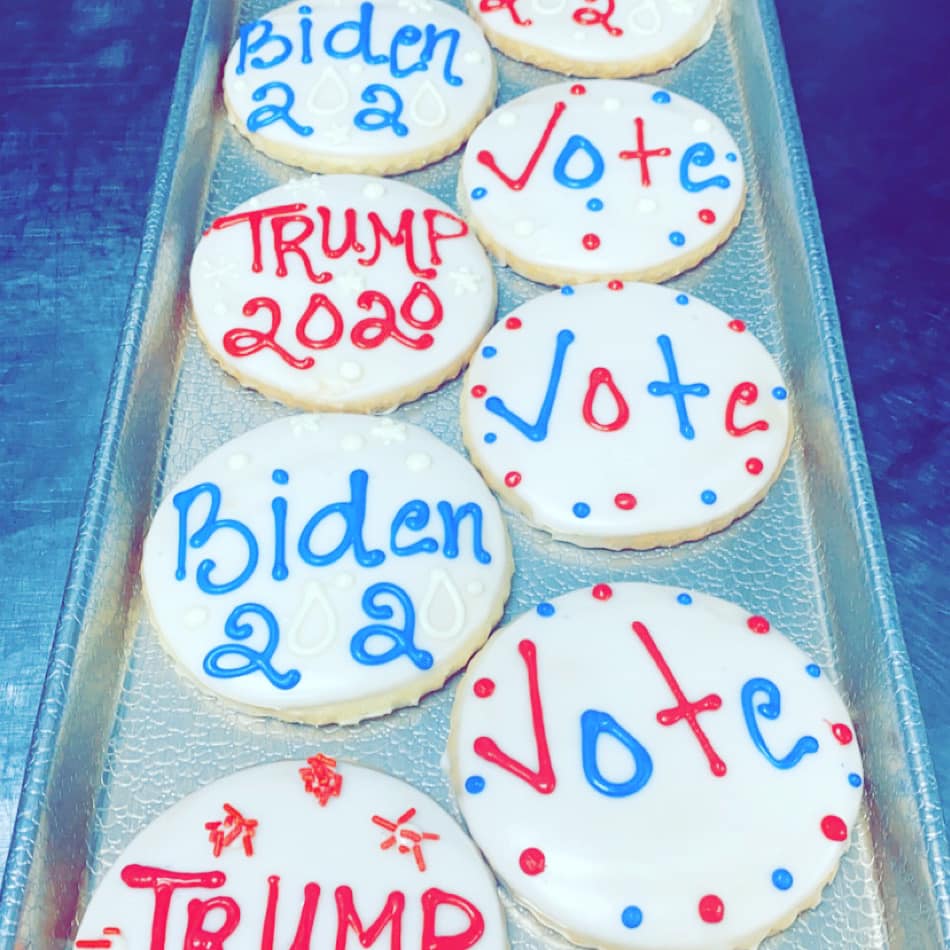 Biden
2020
2020
Vote
TRUMP
2020
Vote
Biden
2020
Vote
TRUMP